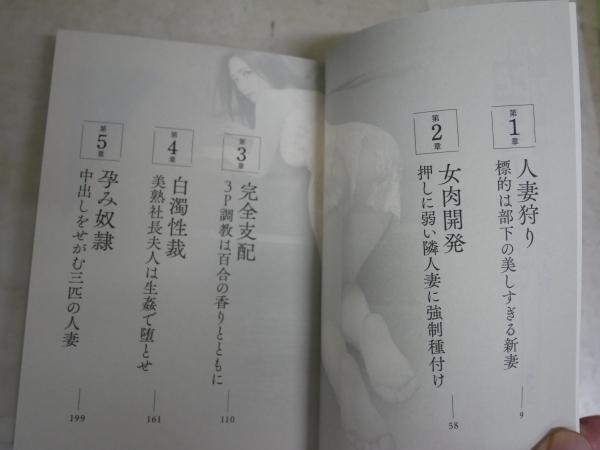 第1章
人妻狩り
標的は部下の美しすぎる新妻
9
第2章
女肉開発
押しに弱い隣人妻に強制種付け
58
第3章
完全支配
3P調教は百合の香りとともに
110
第4章
白濁性裁
美熟社長夫人は生姦で堕とせ
161
第5章
孕み奴隷
中出しをせがむ三匹の人妻
199